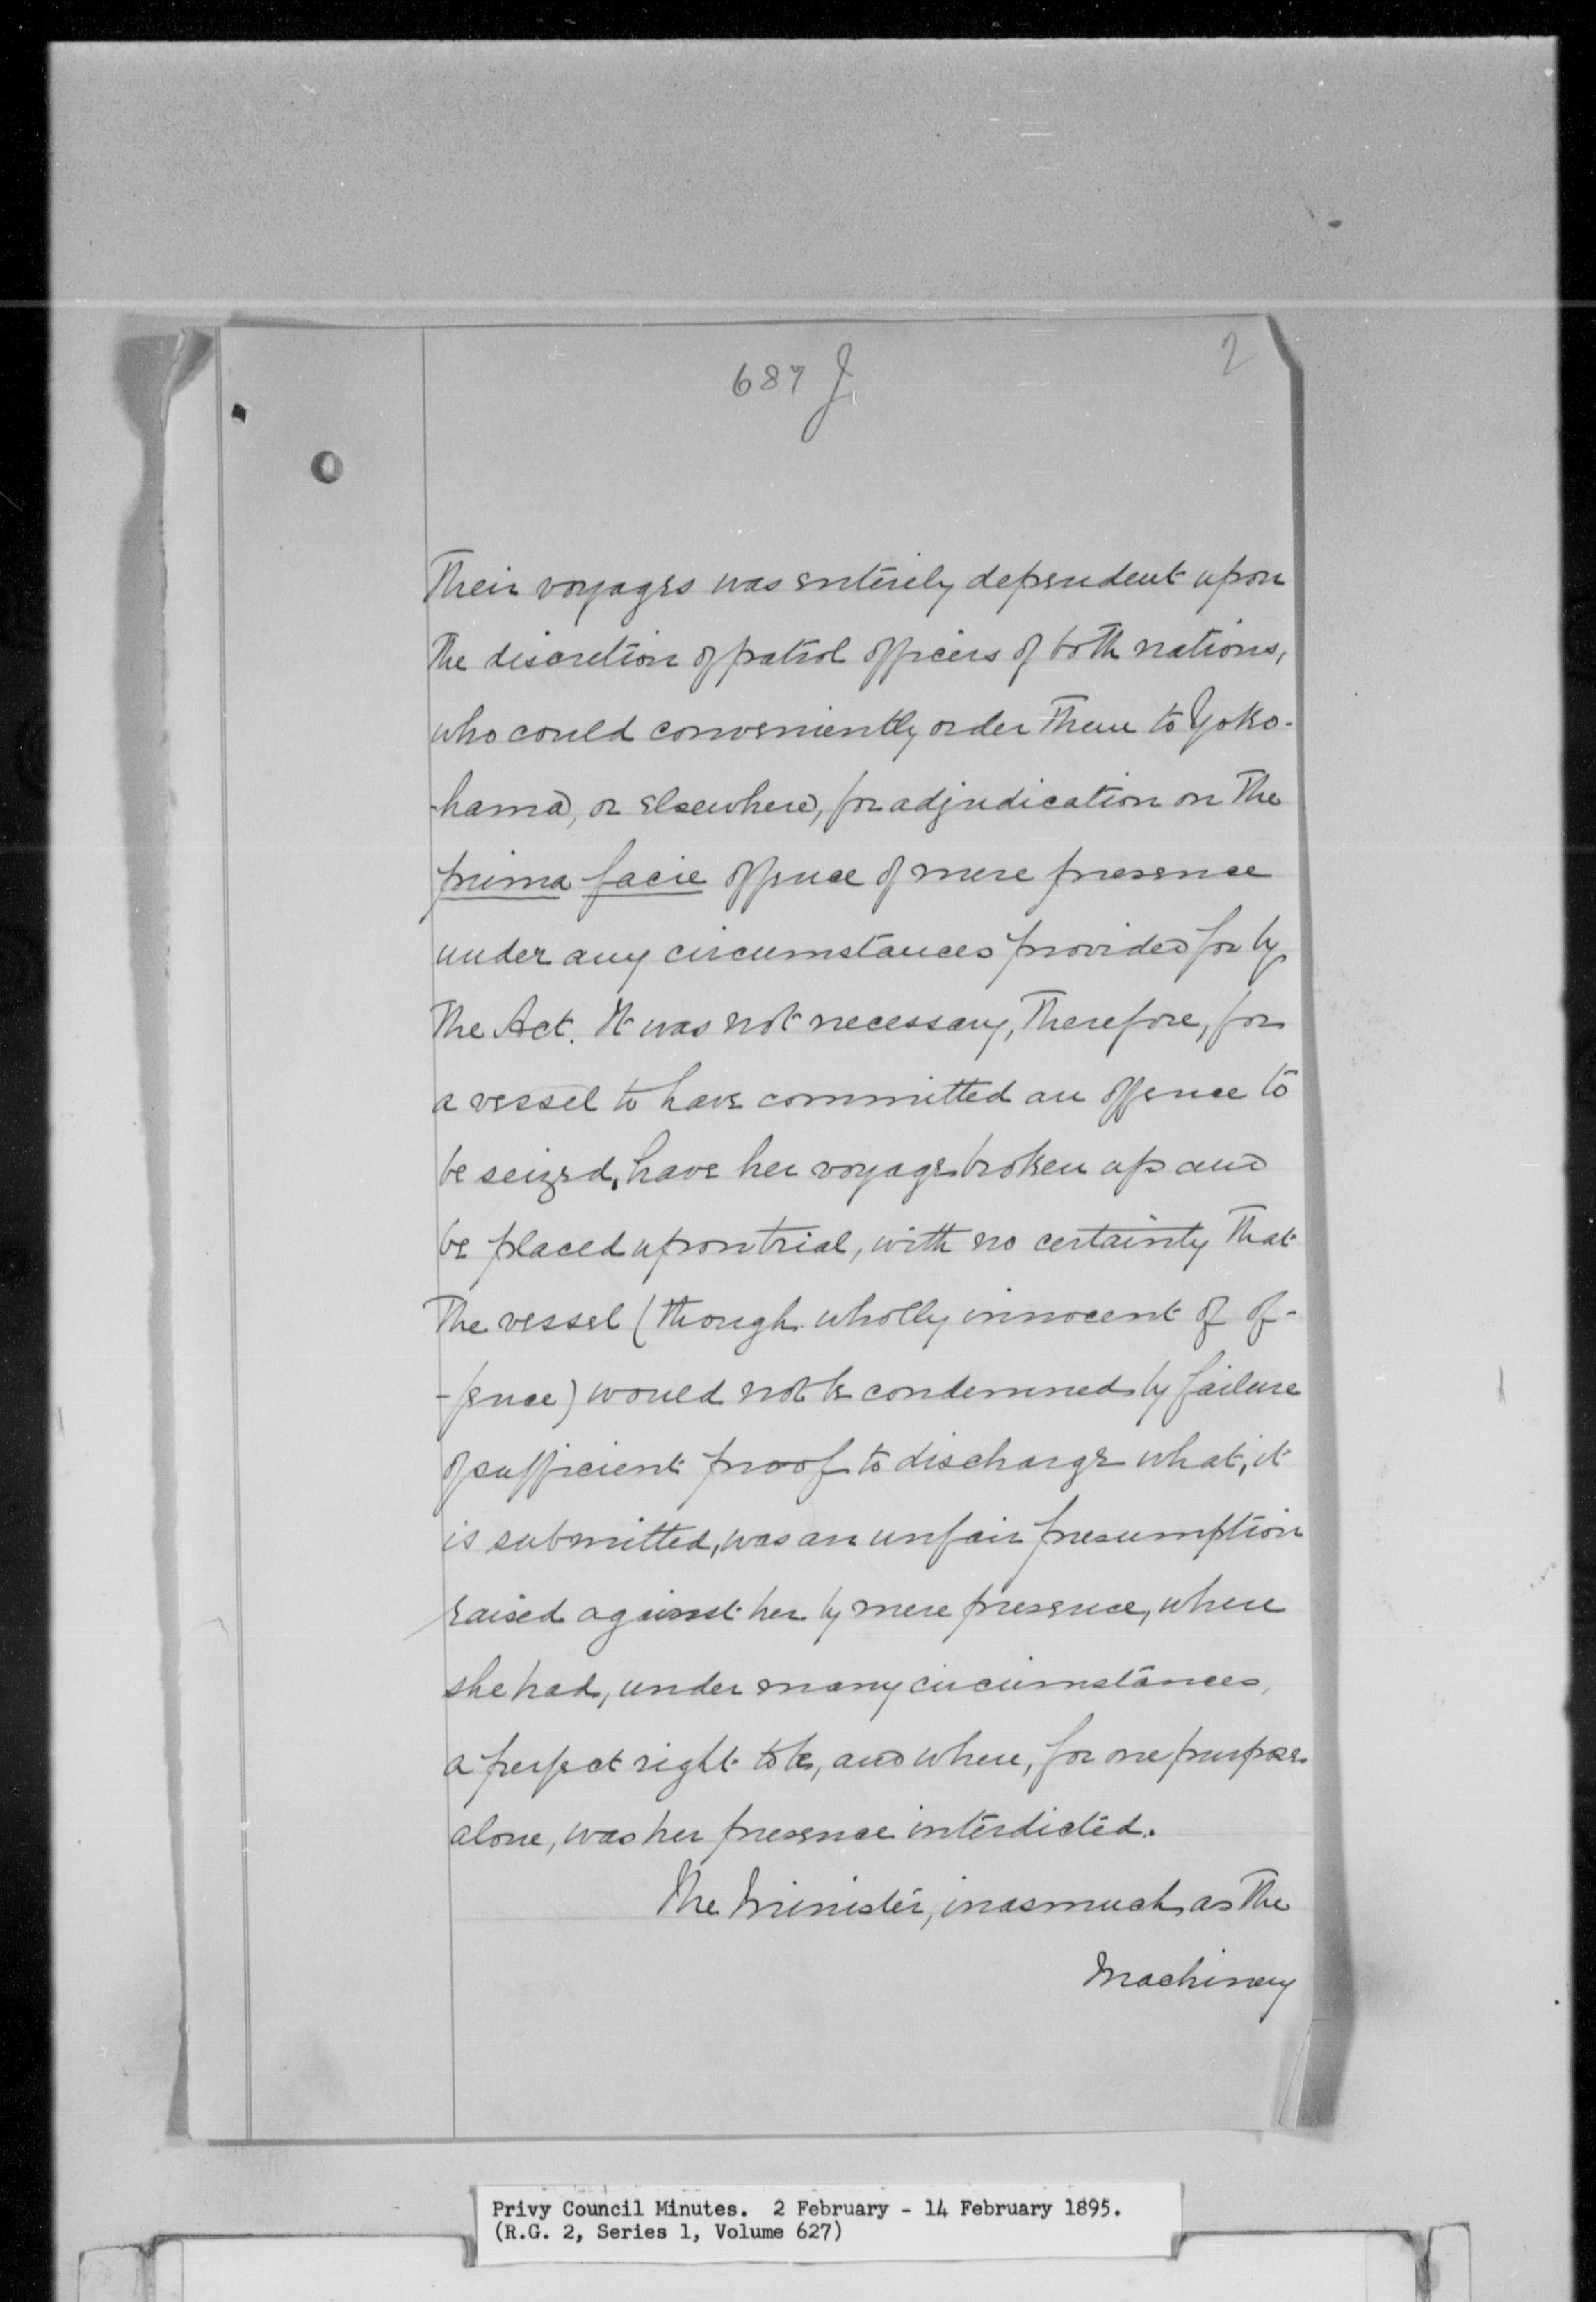 687 J.
2
Their voyages was entirely dependent upon
the discretion of patrol officers of both nations,
who could conveniently order them to Yoko-
-hama, or elsewhere, for adjudication on the
prima facie offence of mere presence
under any circumstances provided for by
the Act. It was not necessary, therefore, for
a vessel to have committed an offence to
be seized, have her voyage broken up and
be placed upon trial, with no certainty that
the vessel (though wholly innocent of of-
-fence) would not be condemned by failure
of sufficient proof to discharge what, it
is submitted, was an unfair presumption
raised against her by mere presence, where
she had, under many circumstances,
a perfect right to be, and where, for one purpose
alone, was her presence interdicted.
The Minister, inasmuch as the
Machinery
Privy Council Minutes. 2 February - 14 February 1895.
(R.G. 2, Series 1, Volume 627)